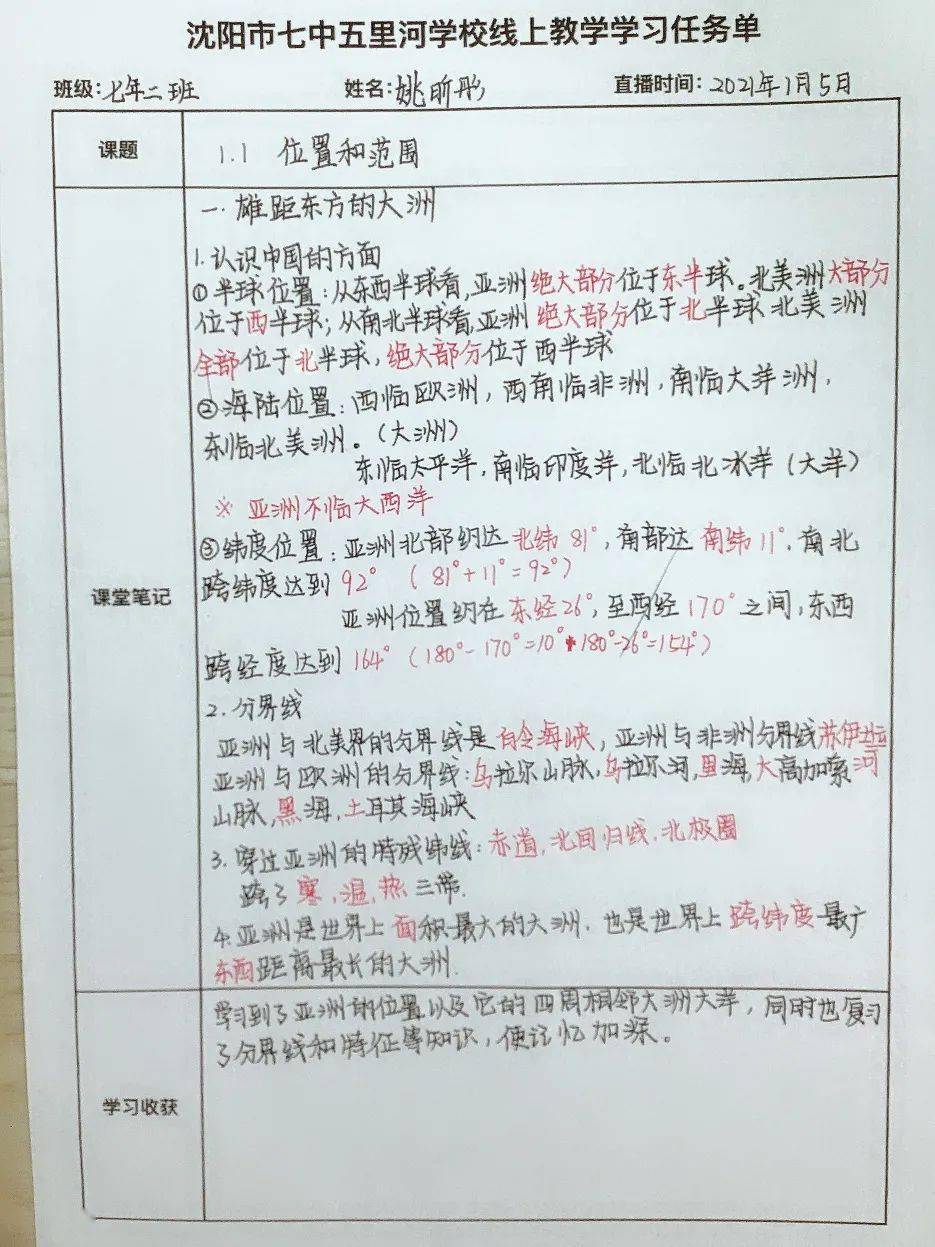 沈阳市七中五里河学校线上教学学习任务单
班级:七年二班 姓名:姚昕彤 直播时间:2021年1月5日
课题
1.1 位置和范围
一.雄距东方的大洲
1.认识中国的方面
①半球位置:从东西半球看,亚洲绝大部分位于东半球。北美洲大部分
位于西半球;从南北半球看,亚洲绝大部分位于北半球 北美洲
全部位于北半球,绝大部分位于西半球
②海陆位置:西临欧洲,西南临非洲,南临大洋洲,
东临北美洲。(大洲)
东临太平洋,南临印度洋,北临北冰洋(大洋)
※ 亚洲不临大西洋
③纬度位置:亚洲北部约达北纬81°,南部达南纬11°.南北
课堂笔记
跨纬度达到92° (81°+11°=92°)
亚洲位置约在东经26°,至西经170°之间,东西
跨经度达到164°(180°-170°=10° 180°-26°=154°)
2.分界线
亚洲与北美界的分界线是白令海峡,亚洲与非洲分界线苏伊士运
亚洲与欧洲的分界线:乌拉尔山脉,乌拉尔河,里海,大高加索河
山脉,黑海,土耳其海峡
3.穿过亚洲的特殊纬线:赤道,北回归线.北极圈
跨了寒,温,热三带.
4.亚洲是世界上面积最大的大洲.也是世界上跨纬度最广
东西距离最长的大洲.
学习收获
学习到了亚洲的位置以及它的四周相邻大洲大洋,同时也复习
了分界线和特征等知识,使记忆加深。